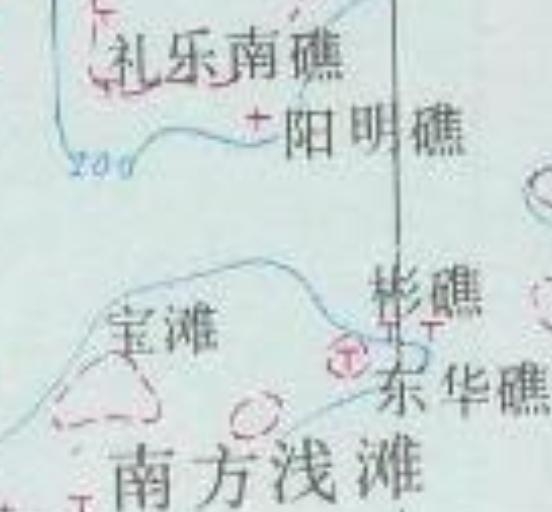 礼乐南礁
阳明礁
200
彬礁
宝滩
东华礁
南方浅滩